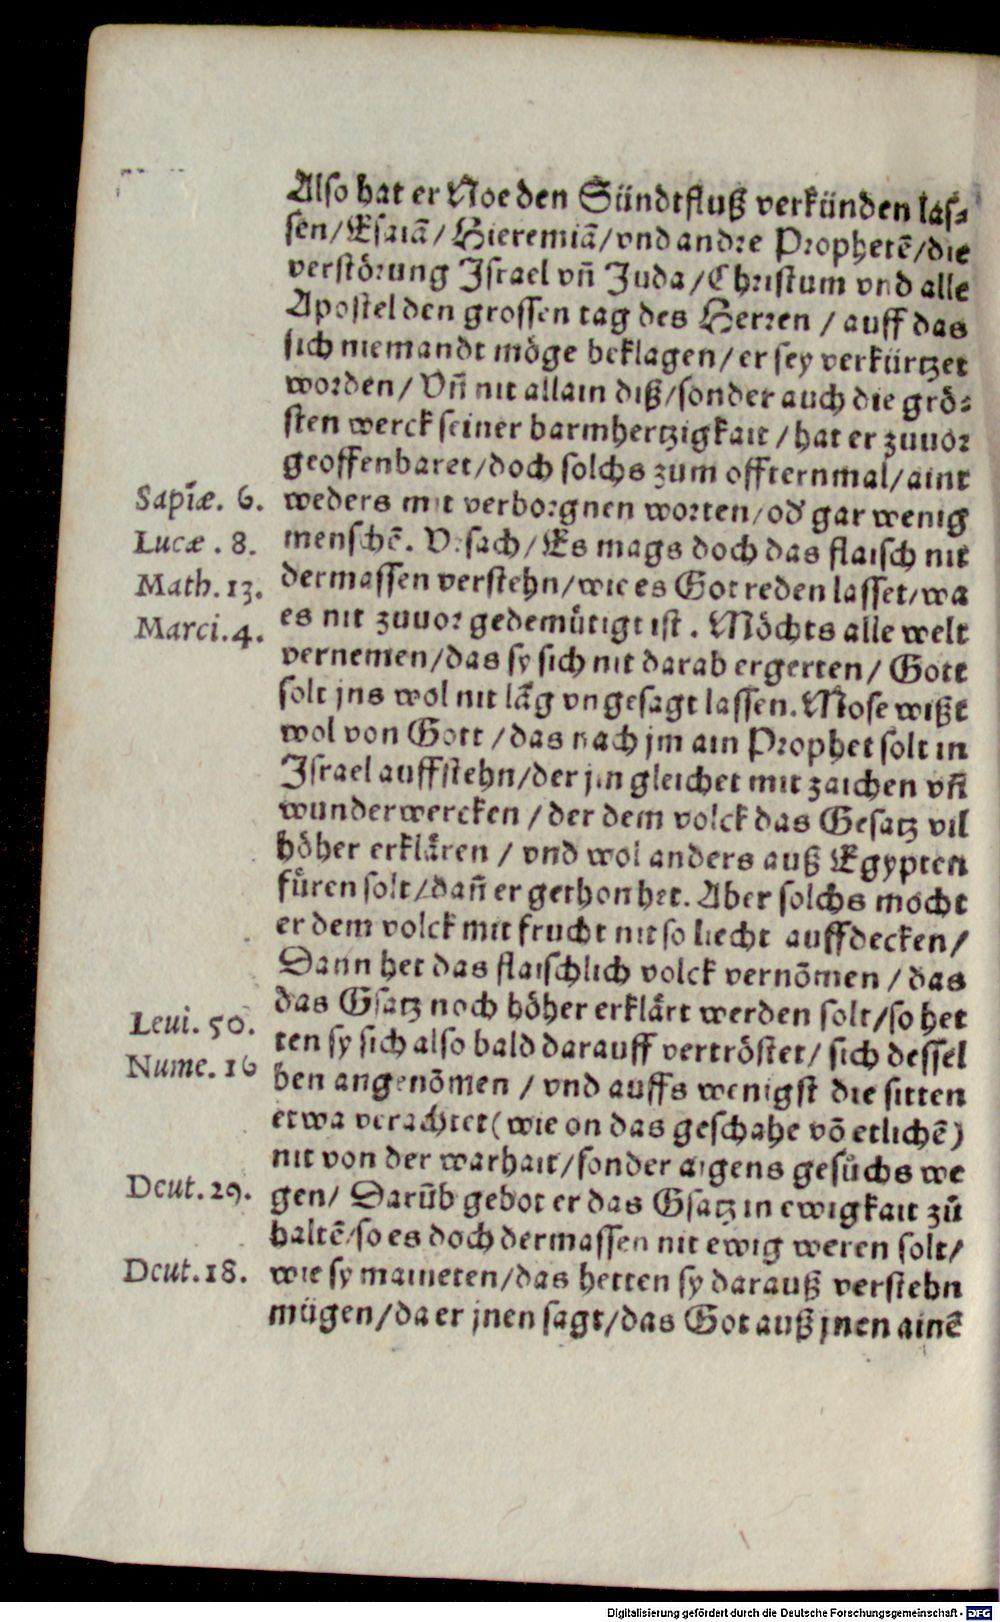 Also hat er Noe den Sündtfluß verkünden las⸗
sen/Esaiā/Hieremiā/vnd andre Prophetē/die
verstörung Israel vñ Juda/Christum vnd alle
Apostel den grossen tag des Herren / auff das
sich niemandt möge beklagen/er sey verkürtzet
worden/Vñ nit allain diß/sonder auch die grö⸗
sten werck seiner barmhertzigkait/hat er zuuor
geoffenbaret/doch solchs zum offternmal/aint
Sapīæ. 6. weders mit verborgnen worten/oď gar wenig
Lucæ . 8. menschē. Vrsach/Es mags doch das flaisch nit
Math. 13. dermassen verstehn/wie es Got reden lasset/wa
Marci. 4. es nit zuuor gedemütigt ist . Möchts alle welt
vernemen/das sy sich nit darab ergerten/ Gott
solt jns wol nit lāg vngesagt lassen. Mose wißt
wol von Gott /das nach jm ain Prophet solt in
Israel auffstehn/der jm gleichet mit zaichen vñ
wunderwercken /der dem volck das Gesatz vil
höher erklären / vnd wol anders auß Egypten
füren solt/dañ er gethon het. Aber solchs mocht
er dem volck mit frucht nit so liecht auffdecken/
Dann het das flaischlich volck vernōmen / das
Leui. 50. das Gsatz noch höher erklärt werden solt/so het
ten sy sich also bald darauff vertröstet/ sich dessel
Nume. 16 ben angenōmen / vnd auffs wenigst die sitten
etwa verachtet(wie on das geschahe vō etlichē)
nit von der warhait/sonder aigens gesůchs we
Deut. 29. gen/ Darūb gebot er das Gsatz in ewigkait zů
haltē/so es doch dermassen nit ewig weren solt/
Deut. 18. wie sy maineten/das hetten sy darauß verstehn
mügen/da er jnen sagt/das Got auß jnen ainē
Digitalisierung gefördert durch die Deutsche Forschungsgemeinschaft - DFG